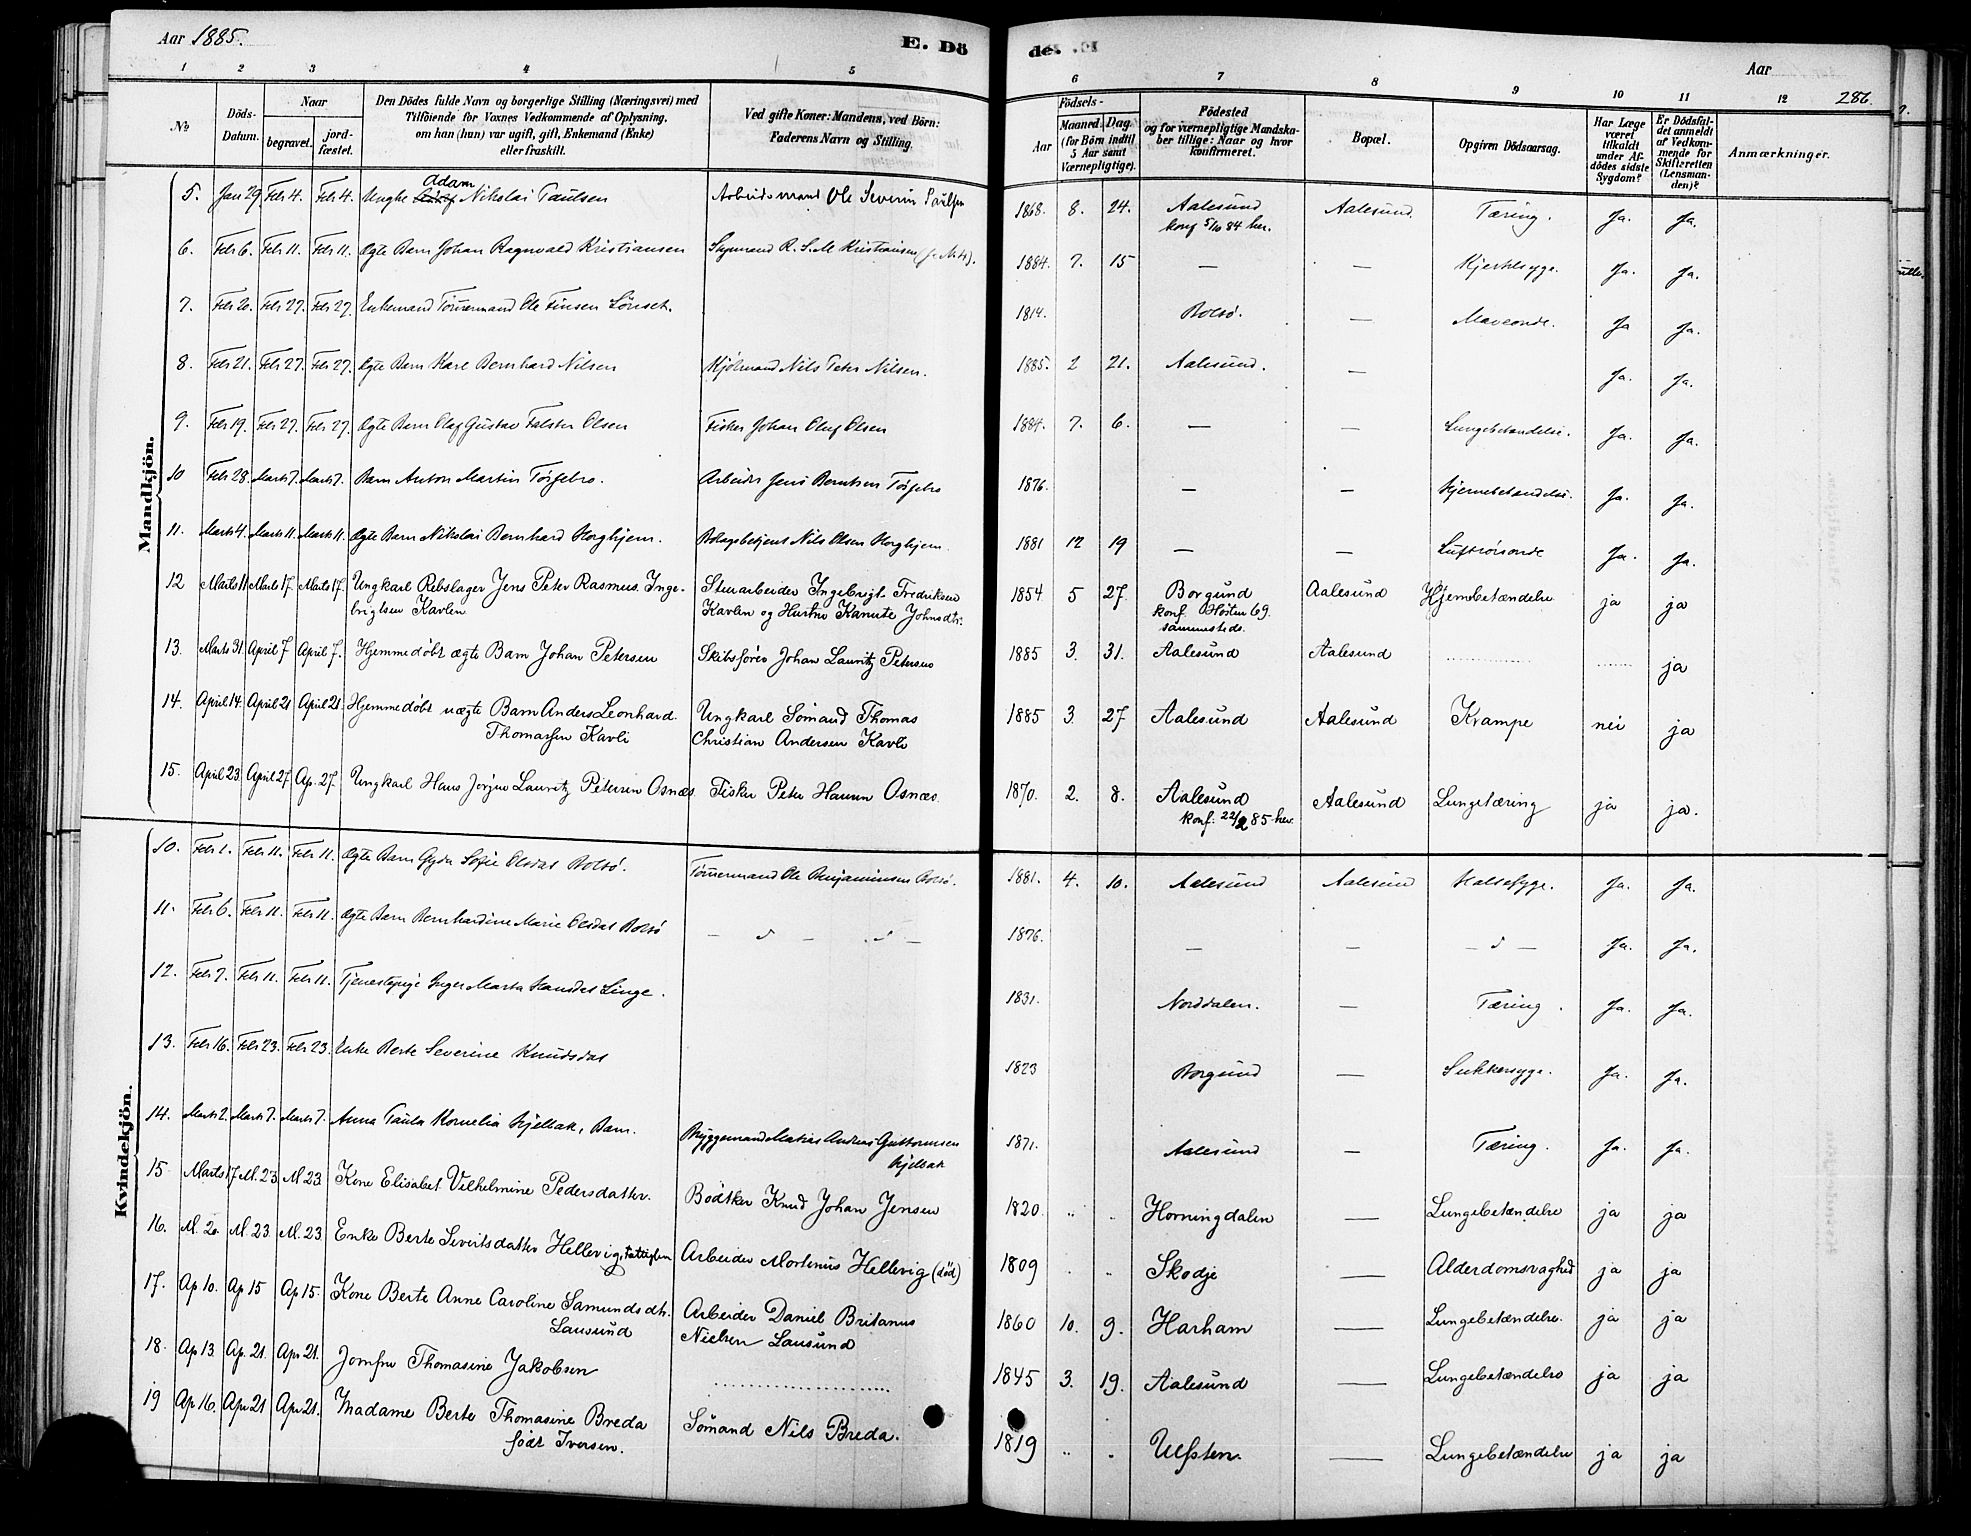 Aar 1885.
E. Dö
de.
Aar
286.
1 2 3 4 5 6 7 8 9 10 11 12
No
Döds-Datum.
Naar
begravet.
jord-fæstet.
Den Dödes fulde Navn og borgerlige Stilling (Næringsvei) med
Tilföiende for Voxnes Vedkommende af Oplysning,
om han (hun) var ugift, gift, Enkemand (Enke)
eller fraskilt.
Ved gifte Koner: Mandens, ved Börn:
Faderens Navn og Stilling.
Födsels-
Aar
Maaned. Dag
(for Börn indtil
5 Aar samt
Værnepligtige).
Födested
og for værnepligtige Mandska-
ber tillige: Naar og hvor
konfirmeret.
Bopæl.
Opgiven Dödsaarsag.
Har Læge
været
tilkaldt
under Af-
dödes sidste
Sygdom?
Er Dödsfal-
det anmeldt
af Vedkom-
mende for
Skifteretten
(Lensman-
den)?
Anmærkninger.
Mandkjön.
Adam
5. Jan 29 Febr 4. Febr 4. Unghe Nikolai Paulsen Arbeidsmand Ole Severin Paulsen 1868. 8. 24. Aalesund Aalesund. Tæring. Ja. Ja.
konf 5/10 84 her.
6. Febr 6. Febr 11. Febr 11. Ægte Barn Johan Ragnvald Kristiansen R. S. M. Kristiansen 1884. 7. 15 — — Kjertelsyge. Ja. Ja.
7. Febr 20. Febr 27. Febr 27. Enkemand Tömermand Ole Finsen Lönset. 1814. Bolsö. — Maveonde. Ja Ja.
8. Febr 21. Febr 27. Febr 27. Ægte Barn Kare Bernhard Nilsen Kjölmand Nils Peter Nilsen. 1885. 2 21. Aalesund. — Ja. Ja.
9. Febr 19. Febr 27. Febr 27. Ægte Barn Olaf Gustav Falster Olsen Fisker Johan Oluf Olsen 1884. 7. 6. — — Lungebetændelse. Ja. Ja.
10 Febr 28. Marts 7. Marts 7. Barn Anton Martin Tösse­bro. Arbeider Jens Berntsen 1876. — — Hjernebetændelse. Ja. Ja.
11. Marts 4. Marts 11. Marts 11. Ægte Barn Nikolai Bernhard Horghjem. Nils Olsen Horghjem 1881 12 19 — — Luftrörsonde Ja. Ja.
12 Marts 11 Marts 17. Marts 17. Ungkarl Rebslager Jens Peter Rasmus Inge- Stenarbeider Ingebrigt Fredriksen 1854. 5 27. Borgund Aalesund Hjernebetændelse ja ja
brigtsen Kavlen Kavlen og Hustru Kanute Johnsdtr. konf. Hösten 69.
sammesteds.
13. Marts 31. April 7 April 7. Hjemmedöbt ægte Barn Johan Petersen Skibsförer Johan Lauritz Petersen 1885 3. 31. Aalesund Aalesund ja
14. April 14. April 21 April 21. Hjemmedöbt uægte Barn Anders Leonhard Ungkarl Sömand Thomas 1885 3. 27. Aalesund Aalesund Krampe nei ja
Thomassen Kavli Christian Andersen Kavli
15. April 23. April 27. Ap. 27. Ungkarl Hans Jörgen Lauritz Petersen Osnæs Fisker Peter Hansen Osnæs 1870. 2. 8. Aalesund Aalesund Lungetæring ja ja.
konf: 22/2 85 her.
Kvindekjön.
10. Febr 1. Febr 11. Febr 11. Ægte Barn Gyda Sofie Olsdat Bolsö. Tömermand Ole Benjaminsen Bolsö. 1881. 4. 10. Aalesund Aalesund Halssyge. Ja. Ja.
11. Febr 6. Febr 11. Febr 11. Ægte Barn Bernhardine Marie Olsdat Bolsö — d — d — 1876. — — — d — Ja. Ja.
12. Febr 7. Febr 11. Febr 11. Tjenestepige Inger Marta Hansdat Linge. 1831. Norddalen. — Tæring. Ja. Ja.
13. Febr 16. Febr 23. Febr 23. Enke Berte Severine Knudsdat 1823 Borgund — Sukkersyge. Ja. Ja.
14. Marts 2. Marts 7. Marts 7. Anna Paula Kornelia Kjelbak, Barn. Byggemand Matias Andreas Guttormsen 1871. Aalesund — Tæring. Ja. Ja.
Kjelbak
15. Marts 17 M. 23. M. 23. Kone Elisabet Vilhelmine Pedersdatter. Bödtker Knud Johan Jensen 1820. Horningdalen — Lungebetændelse ja ja
16. M. 20. M. 23. M. 23 Enke Berte Sevritsdatter Hellevig Fattiglem Arbeider Mortinus Hellevig (död) 1809 Skodje — Alderdomsvaghed ja ja
17. Ap 10. Ap 15 Ap 15. Kone Berte Anne Caroline Samundsdtr. Arbeider Daniel Britanus 1860 10. 9. Harham — Lungebetændelse. ja ja
Lausund Nielsen Lausund
18. Ap 13. Ap. 21. Apr 21. Jomfru Thomasine Jakobsen 1845 3. 19. Aalesund — Lungebetændelse ja ja
19 Ap 16. Apr 21 Apr 21. Madame Berte Thomasine Breda Sömand Nils Breda. 1819 Ulfsten. — Lungebetændelse ja ja
födt Iversen.